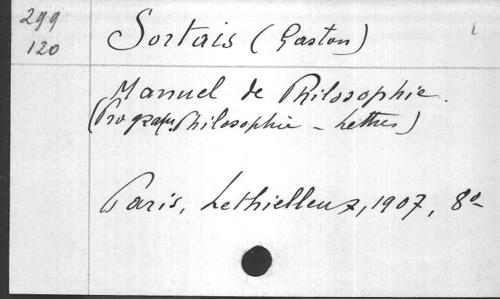 299
120
Sortais (Gaston)
Manuel de Philosophie.
(Program. Philosophie - Lettres)
Paris, Lethielleux, 1907, 8°